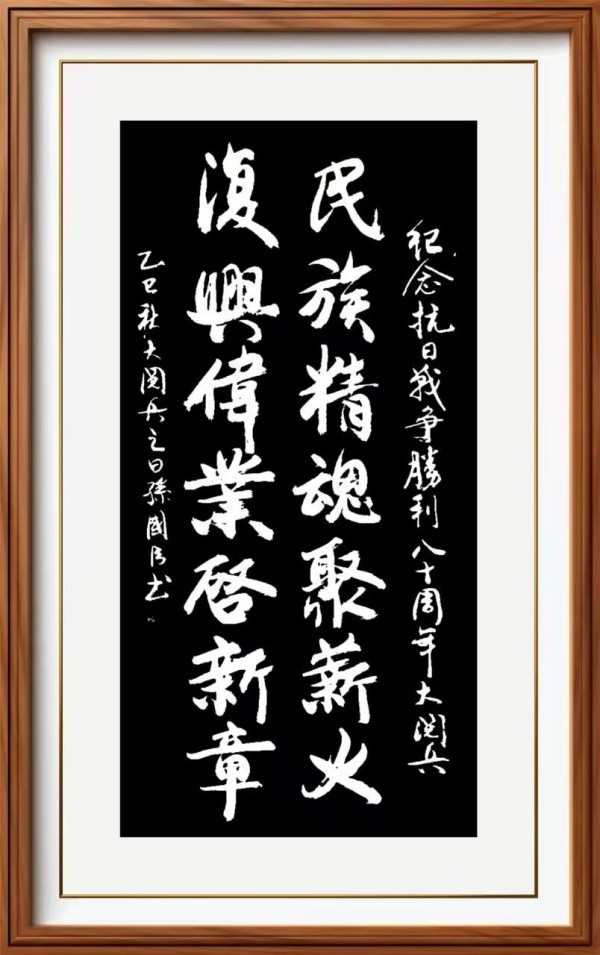 紀念抗日戰争勝利八十周年大閲兵
民族精魂聚薪火
復興偉業啓新章
乙巳秋大閲兵之日孫國民书